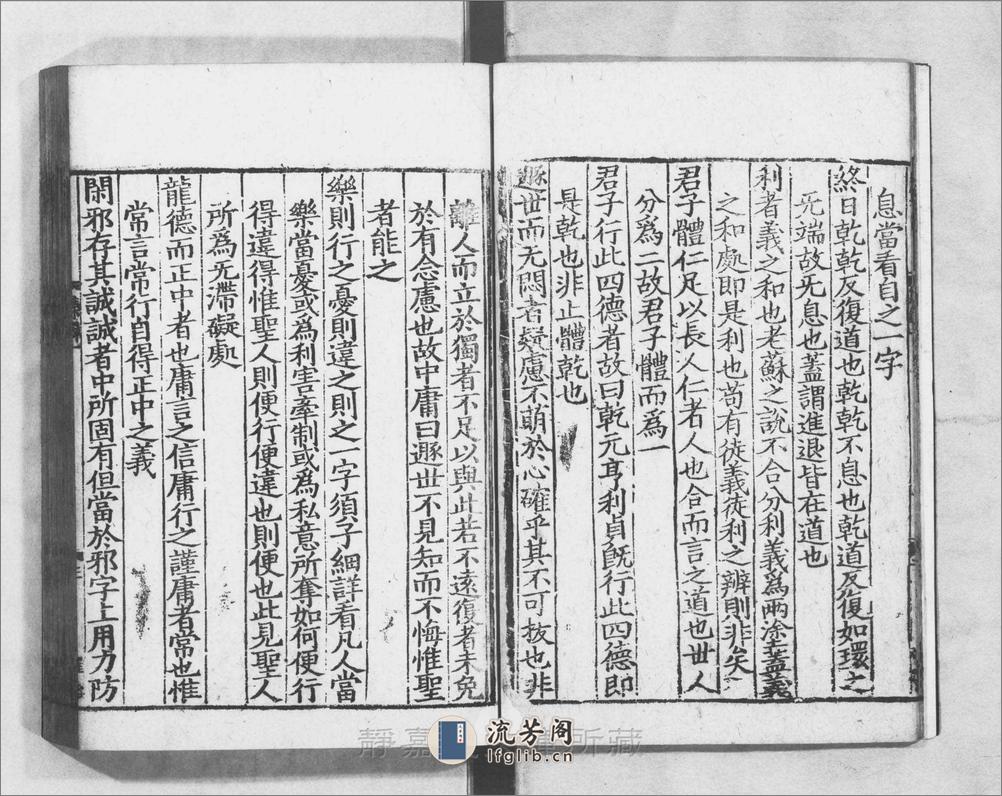 息當看自之一字
終日乾乾反復道也乾乾不息也乾道反復如環之
旡端故旡息也蓋謂進退皆在道也
利者義之和也老蘇之說不合分利義爲兩塗蓋義
之和處即是利也苟有徒義徒利之辨則非矣
君子體仁足以長人仁者人也合而言之道也世人
分爲二故君子體而爲一
君子行此四德者故曰乾元亨利貞旣行此四德即
是乾也非止體乾也
遯世而无悶者疑慮不萌於心確乎其不可拔也非
離人而立於獨者不足以與此若不遠復者未免
於有念慮也故中庸曰遯世不見知而不悔惟聖
者能之
樂則行之憂則違之則之一字須子細詳看凡人當
樂當憂或爲利害牽制或爲私意所奪如何便行
得違得惟聖人則便行便違也則便也此見聖人
所爲旡滯礙處
龍德而正中者也庸言之信庸行之謹庸者常也惟
常言常行自得正中之義
閑邪存其誠誠者中所固有但當於邪字上用力防
靜嘉 所藏
流芳阁
lfglib.cn